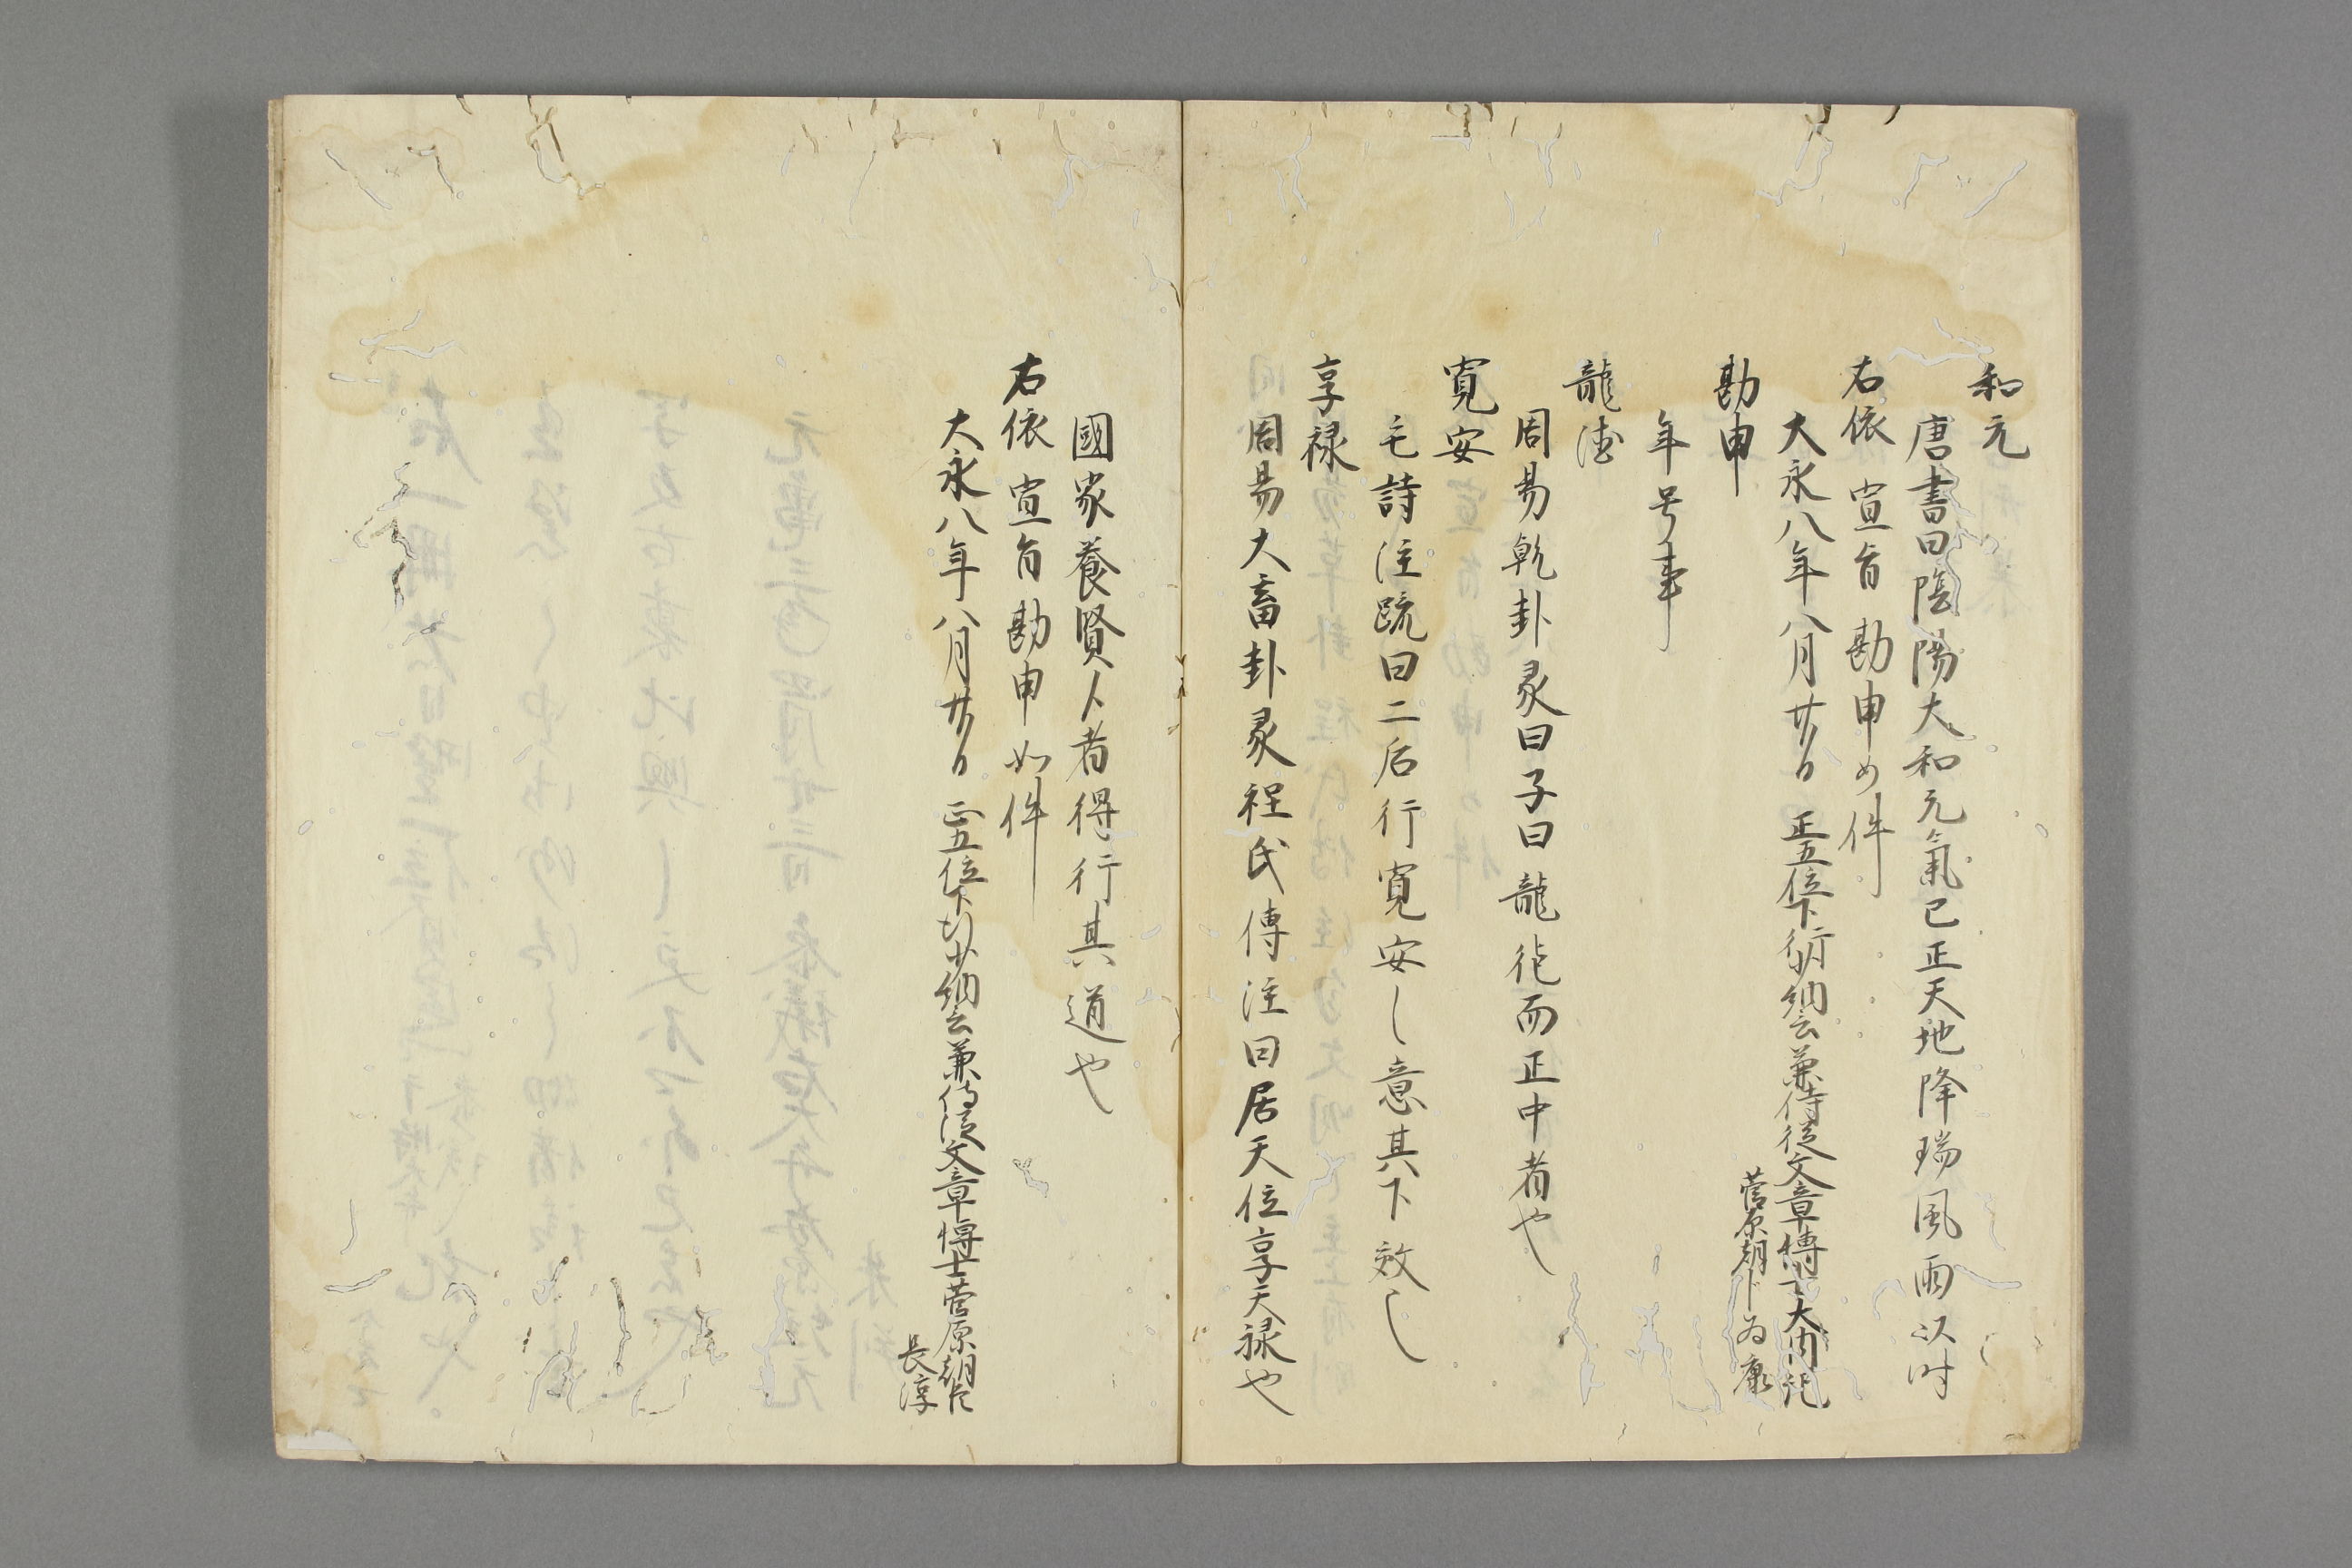 和元
唐書曰陰陽大和元氣已正天地降瑞風雨以時
右依 宣旨勘申如件
大永八年八月廿日 正五位下行少納言兼侍從文章博士大内記
菅原朝臣為康
勘申
年号事
龍徳
周易乾卦彖曰子曰龍徳而正中者也
寛安
毛詩注疏曰二后行寛安之意其下效之
享禄
周易大畜卦彖程氏傳注曰居天位享天禄也
國家養賢人者得行其道也
右依 宣旨勘申如件
大永八年八月廿日 正五位下行少納言兼侍從文章博士菅原朝臣
長淳